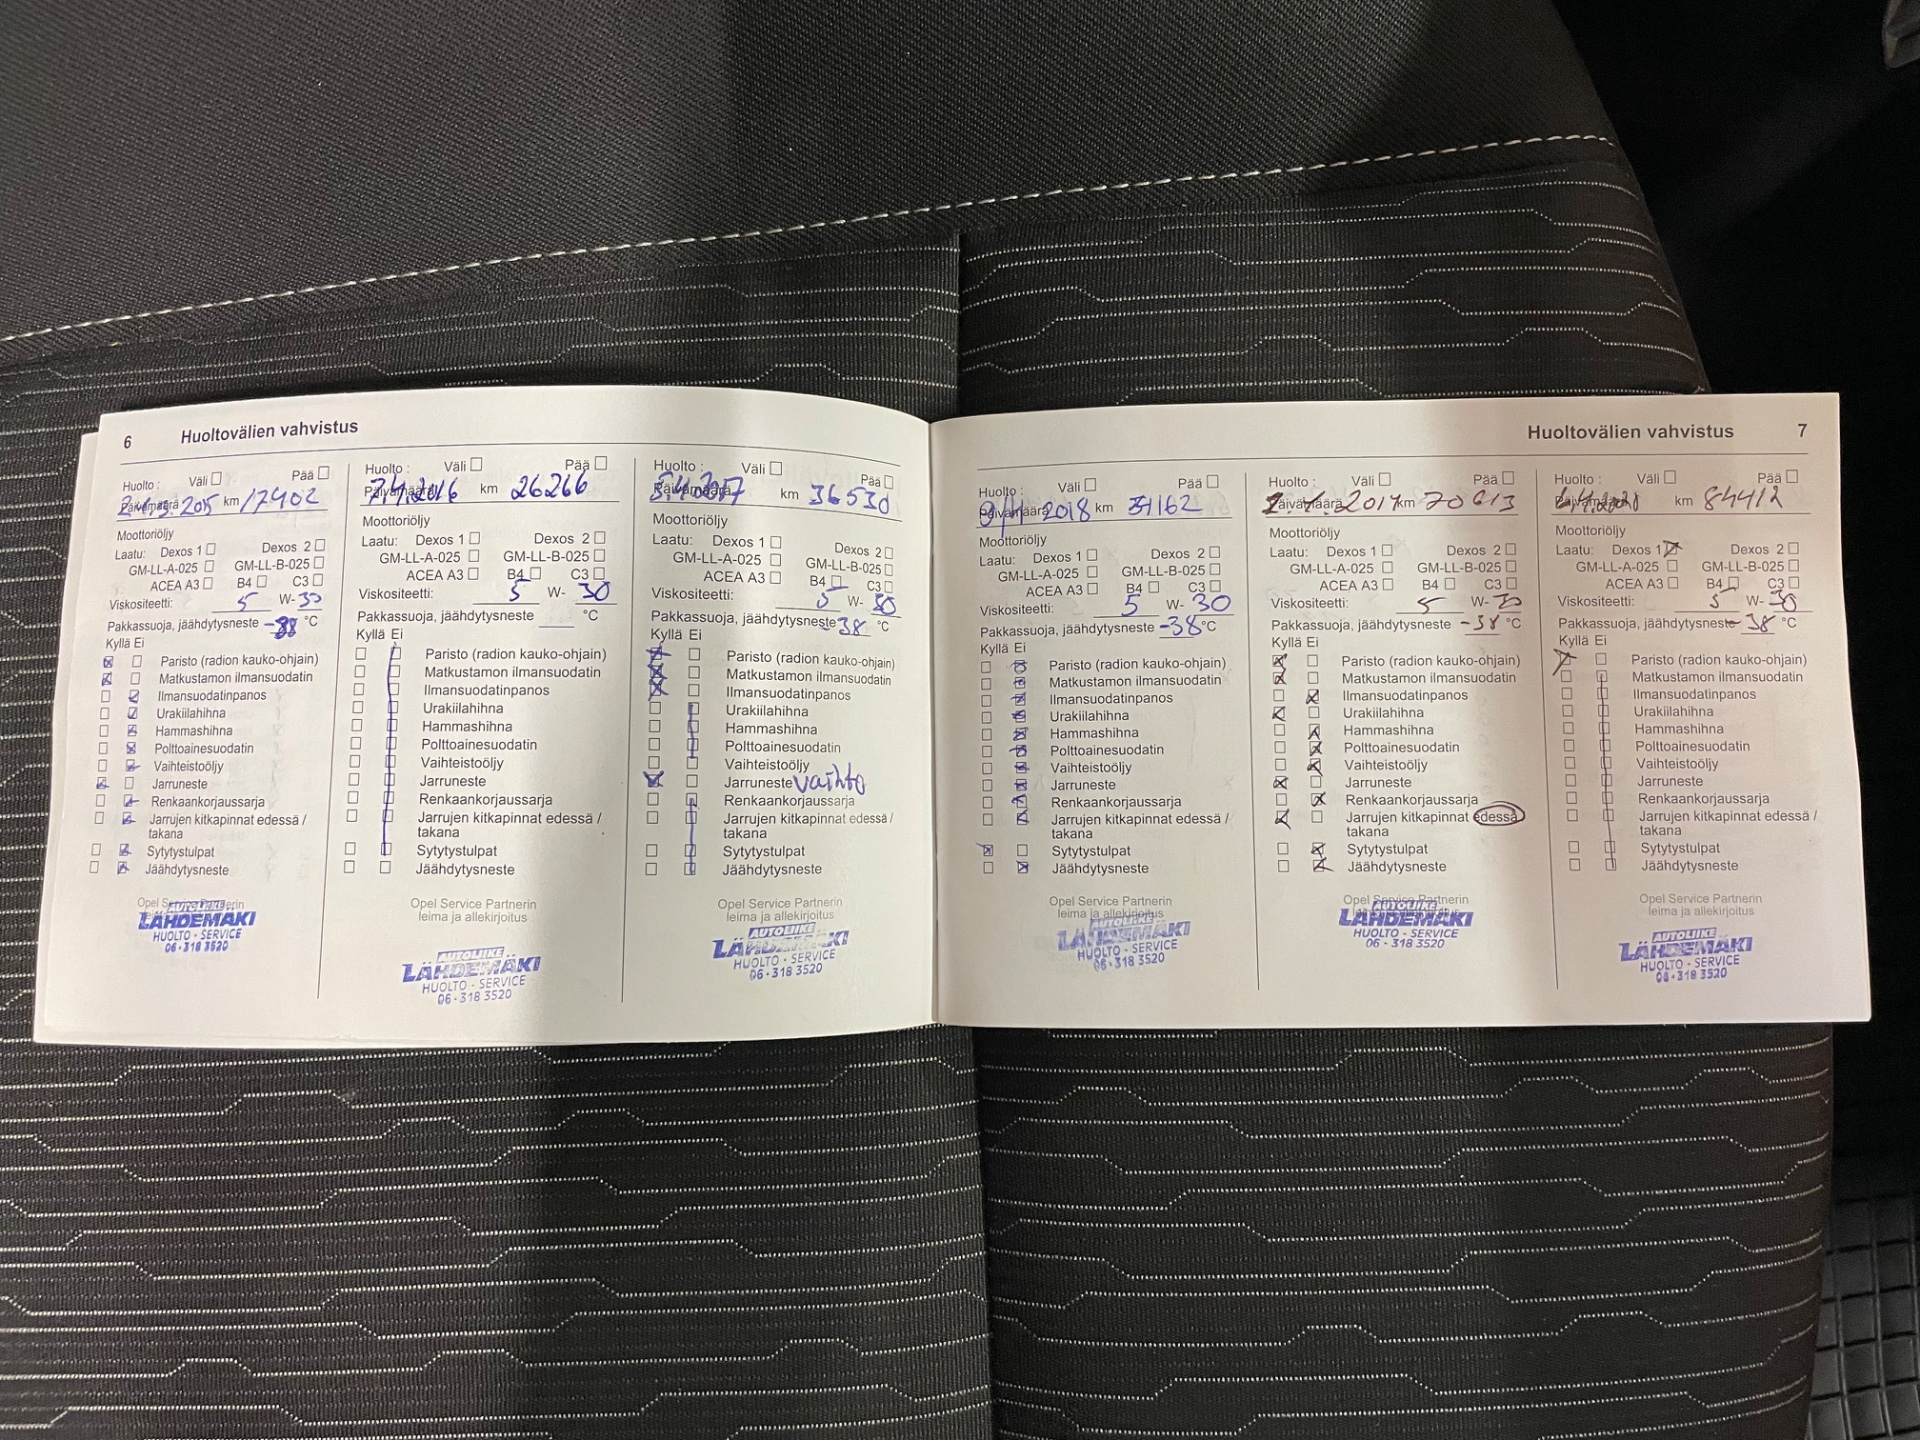 6 Huoltovälien vahvistus
Huolto : Väli Pää
Päivämäärä 2015 km 17402
Moottoriöljy
Laatu: Dexos 1 Dexos 2
GM-LL-A-025 GM-LL-B-025
ACEA A3 B4 C3
Viskositeetti: 5 W- 30
Pakkassuoja, jäähdytysneste -38 °C
Kyllä Ei
Paristo (radion kauko-ohjain)
Matkustamon ilmansuodatin
Ilmansuodatinpanos
Urakiilahihna
Hammashihna
Polttoainesuodatin
Vaihteistoöljy
Jarruneste
Renkaankorjaussarja
Jarrujen kitkapinnat edessä /
takana
Sytytystulpat
Jäähdytysneste
Opel Service Partnerin
AUTOLIIKE
LÄHDEMÄKI
HUOLTO - SERVICE
06 - 318 3520
Huolto : Väli Pää
Päivämäärä 7.4.2016 km 26266
Moottoriöljy
Laatu: Dexos 1 Dexos 2
GM-LL-A-025 GM-LL-B-025
ACEA A3 B4 C3
Viskositeetti: 5 W- 30
Pakkassuoja, jäähdytysneste °C
Kyllä Ei
Paristo (radion kauko-ohjain)
Matkustamon ilmansuodatin
Ilmansuodatinpanos
Urakiilahihna
Hammashihna
Polttoainesuodatin
Vaihteistoöljy
Jarruneste
Renkaankorjaussarja
Jarrujen kitkapinnat edessä /
takana
Sytytystulpat
Jäähdytysneste
Opel Service Partnerin
leima ja allekirjoitus
AUTOLIIKE
LÄHDEMÄKI
HUOLTO - SERVICE
06 - 318 3520
Huolto : Väli Pää
Päivämäärä km 36530
Moottoriöljy
Laatu: Dexos 1 Dexos 2
GM-LL-A-025 GM-LL-B-025
ACEA A3 B4 C3
Viskositeetti: 5 W- 30
Pakkassuoja, jäähdytysneste -38 °C
Kyllä Ei
Paristo (radion kauko-ohjain)
Matkustamon ilmansuodatin
Ilmansuodatinpanos
Urakiilahihna
Hammashihna
Polttoainesuodatin
Vaihteistoöljy
Jarruneste vaihto
Renkaankorjaussarja
Jarrujen kitkapinnat edessä /
takana
Sytytystulpat
Jäähdytysneste
Opel Service Partnerin
leima ja allekirjoitus
AUTOLIIKE
LÄHDEMÄKI
HUOLTO - SERVICE
06 - 318 3520
Huoltovälien vahvistus 7
Huolto : Väli Pää
Päivämäärä 2018 km
Moottoriöljy
Laatu: Dexos 1 Dexos 2
GM-LL-A-025 GM-LL-B-025
ACEA A3 B4 C3
Viskositeetti: 5 W- 30
Pakkassuoja, jäähdytysneste -38 °C
Kyllä Ei
Paristo (radion kauko-ohjain)
Matkustamon ilmansuodatin
Ilmansuodatinpanos
Urakiilahihna
Hammashihna
Polttoainesuodatin
Vaihteistoöljy
Jarruneste
Renkaankorjaussarja
Jarrujen kitkapinnat edessä /
takana
Sytytystulpat
Jäähdytysneste
Opel Service Partnerin
leima ja allekirjoitus
AUTOLIIKE
LÄHDEMÄKI
HUOLTO - SERVICE
06 - 318 3520
Huolto : Väli Pää
Päivämäärä km 70613
Moottoriöljy
Laatu: Dexos 1 Dexos 2
GM-LL-A-025 GM-LL-B-025
ACEA A3 B4 C3
Viskositeetti: 5 W- 30
Pakkassuoja, jäähdytysneste -38 °C
Kyllä Ei
Paristo (radion kauko-ohjain)
Matkustamon ilmansuodatin
Ilmansuodatinpanos
Urakiilahihna
Hammashihna
Polttoainesuodatin
Vaihteistoöljy
Jarruneste
Renkaankorjaussarja
Jarrujen kitkapinnat edessä
takana
Sytytystulpat
Jäähdytysneste
Opel Service Partnerin
AUTOLIIKE
LÄHDEMÄKI
HUOLTO - SERVICE
06 - 318 3520
Huolto : Väli Pää
Päivämäärä km 84412
Moottoriöljy
Laatu: Dexos 1 Dexos 2
GM-LL-A-025 GM-LL-B-025
ACEA A3 B4 C3
Viskositeetti: 5 W- 30
Pakkassuoja, jäähdytysneste -38 °C
Kyllä Ei
Paristo (radion kauko-ohjain)
Matkustamon ilmansuodatin
Ilmansuodatinpanos
Urakiilahihna
Hammashihna
Polttoainesuodatin
Vaihteistoöljy
Jarruneste
Renkaankorjaussarja
Jarrujen kitkapinnat edessä /
takana
Sytytystulpat
Jäähdytysneste
Opel Service Partnerin
leima ja allekirjoitus
AUTOLIIKE
LÄHDEMÄKI
HUOLTO - SERVICE
06 - 318 3520